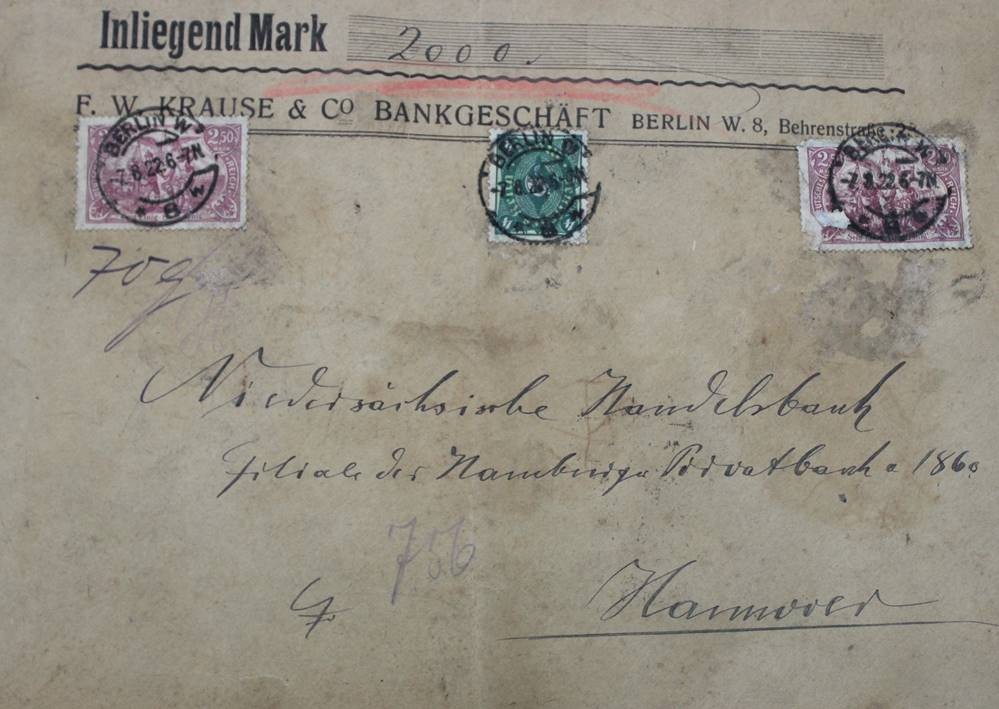 Inliegend Mark 2000.
F. W. KRAUSE & CO BANKGESCHÄFT BERLIN W. 8, Behrenstraße
BERLIN W 2,50 BERLIN W BERLIN W
-7.8.22.6-7N -7.8.22.6-7N -7.8.22.6-7N
* 8 * 8 REICH
70 g
Niedersächsische Handelsbank
Filiale der Hamburger Privatbank a 1860
756
Hannover